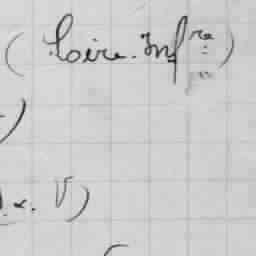 (Loire. Infre)
)
. x. V)
(